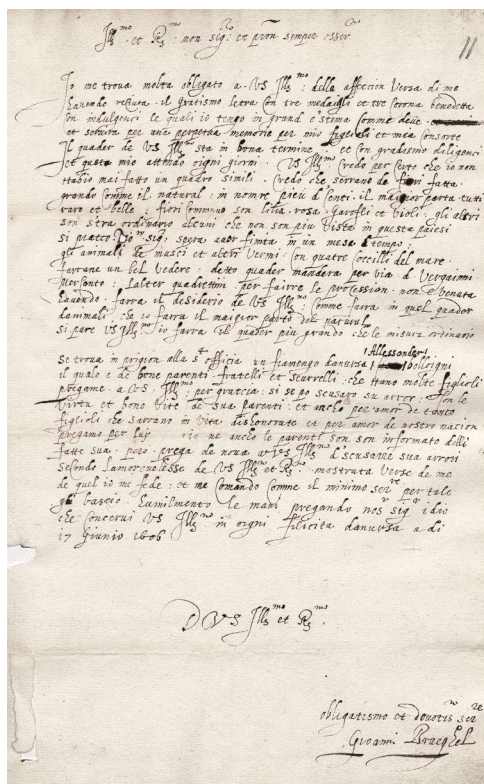 11
Ill.mo et R.mo mon sig.re et pron semper osser.mo
Io me trova molta obligato a VS Ill.mo della affection versa di me
havende receuta il gratismo letra con tre medaigli et tre corona benedetta
con indulgenci le quali io tengo in grand estema comme deve
et servira per una perpetua memorie per mio figlioli et mia consorte
Il quader de VS Ill.mo sta in bona termine et con gradesmo diligenci
et gusto mio attindo oigni giorni VS Ill.mo credo per certo che io non
habio mai fatto un quadro simili credo che serrano de fiori fatta
grando comme il natural in nomre pieu d centi il maior parta tutti
raro et belle fiori commun son lilia rosa garofli et violi gli altri
son stra ordinario alcuni che non son piu vista in questa paiesi
si piaces sig. spera aver finita in un mese d tempo
gli animali de masci et altri vermi con quatre coccilli del mare
farrane un bel vedere detto quader mandera per via d Vergaimi
per conto Lalter quadrettini per fairre le profession non e venuta
havendo farra il desiderio de VS Ill.mo comme farra in quel quader
danimali che io farra il maior parto del natural
si pare VS Ill.mo io farra il quader piu grando che le misura ordinario
se trova in prigion alla s.t officia un fiamengo danvursa Allessander
il qualo e de bone parenti fratelli et seurrelli che hano molte figlioli
pregame a VS Ill.mo per gratia si se po scusaro su arror son le
virtu et bono vite de sua parenti et ancho per amor de tonco
figlioli che sarrano in vita dishonorate et per amor de nostro nacion
pregamo per lur io ne anche le parenti son son informato delli
fatte sua pero prega de nova a VS Ill.mo d scusarre sua arrori
secondo lamorevolesse de VS Ill.mo et R.mo mostrata verse de me
de quel io me fede et me comando comme il minimo ser.re per tale
gli bascio humilmento le mani pregando nos sig.r idio
che concervi VS Ill.mo in oigni filicita danvursa a di
17 Giunio 1606
D VS Ill.mo et R.mo
obligatismo et devotis ser.re
Gioanni Brueghel